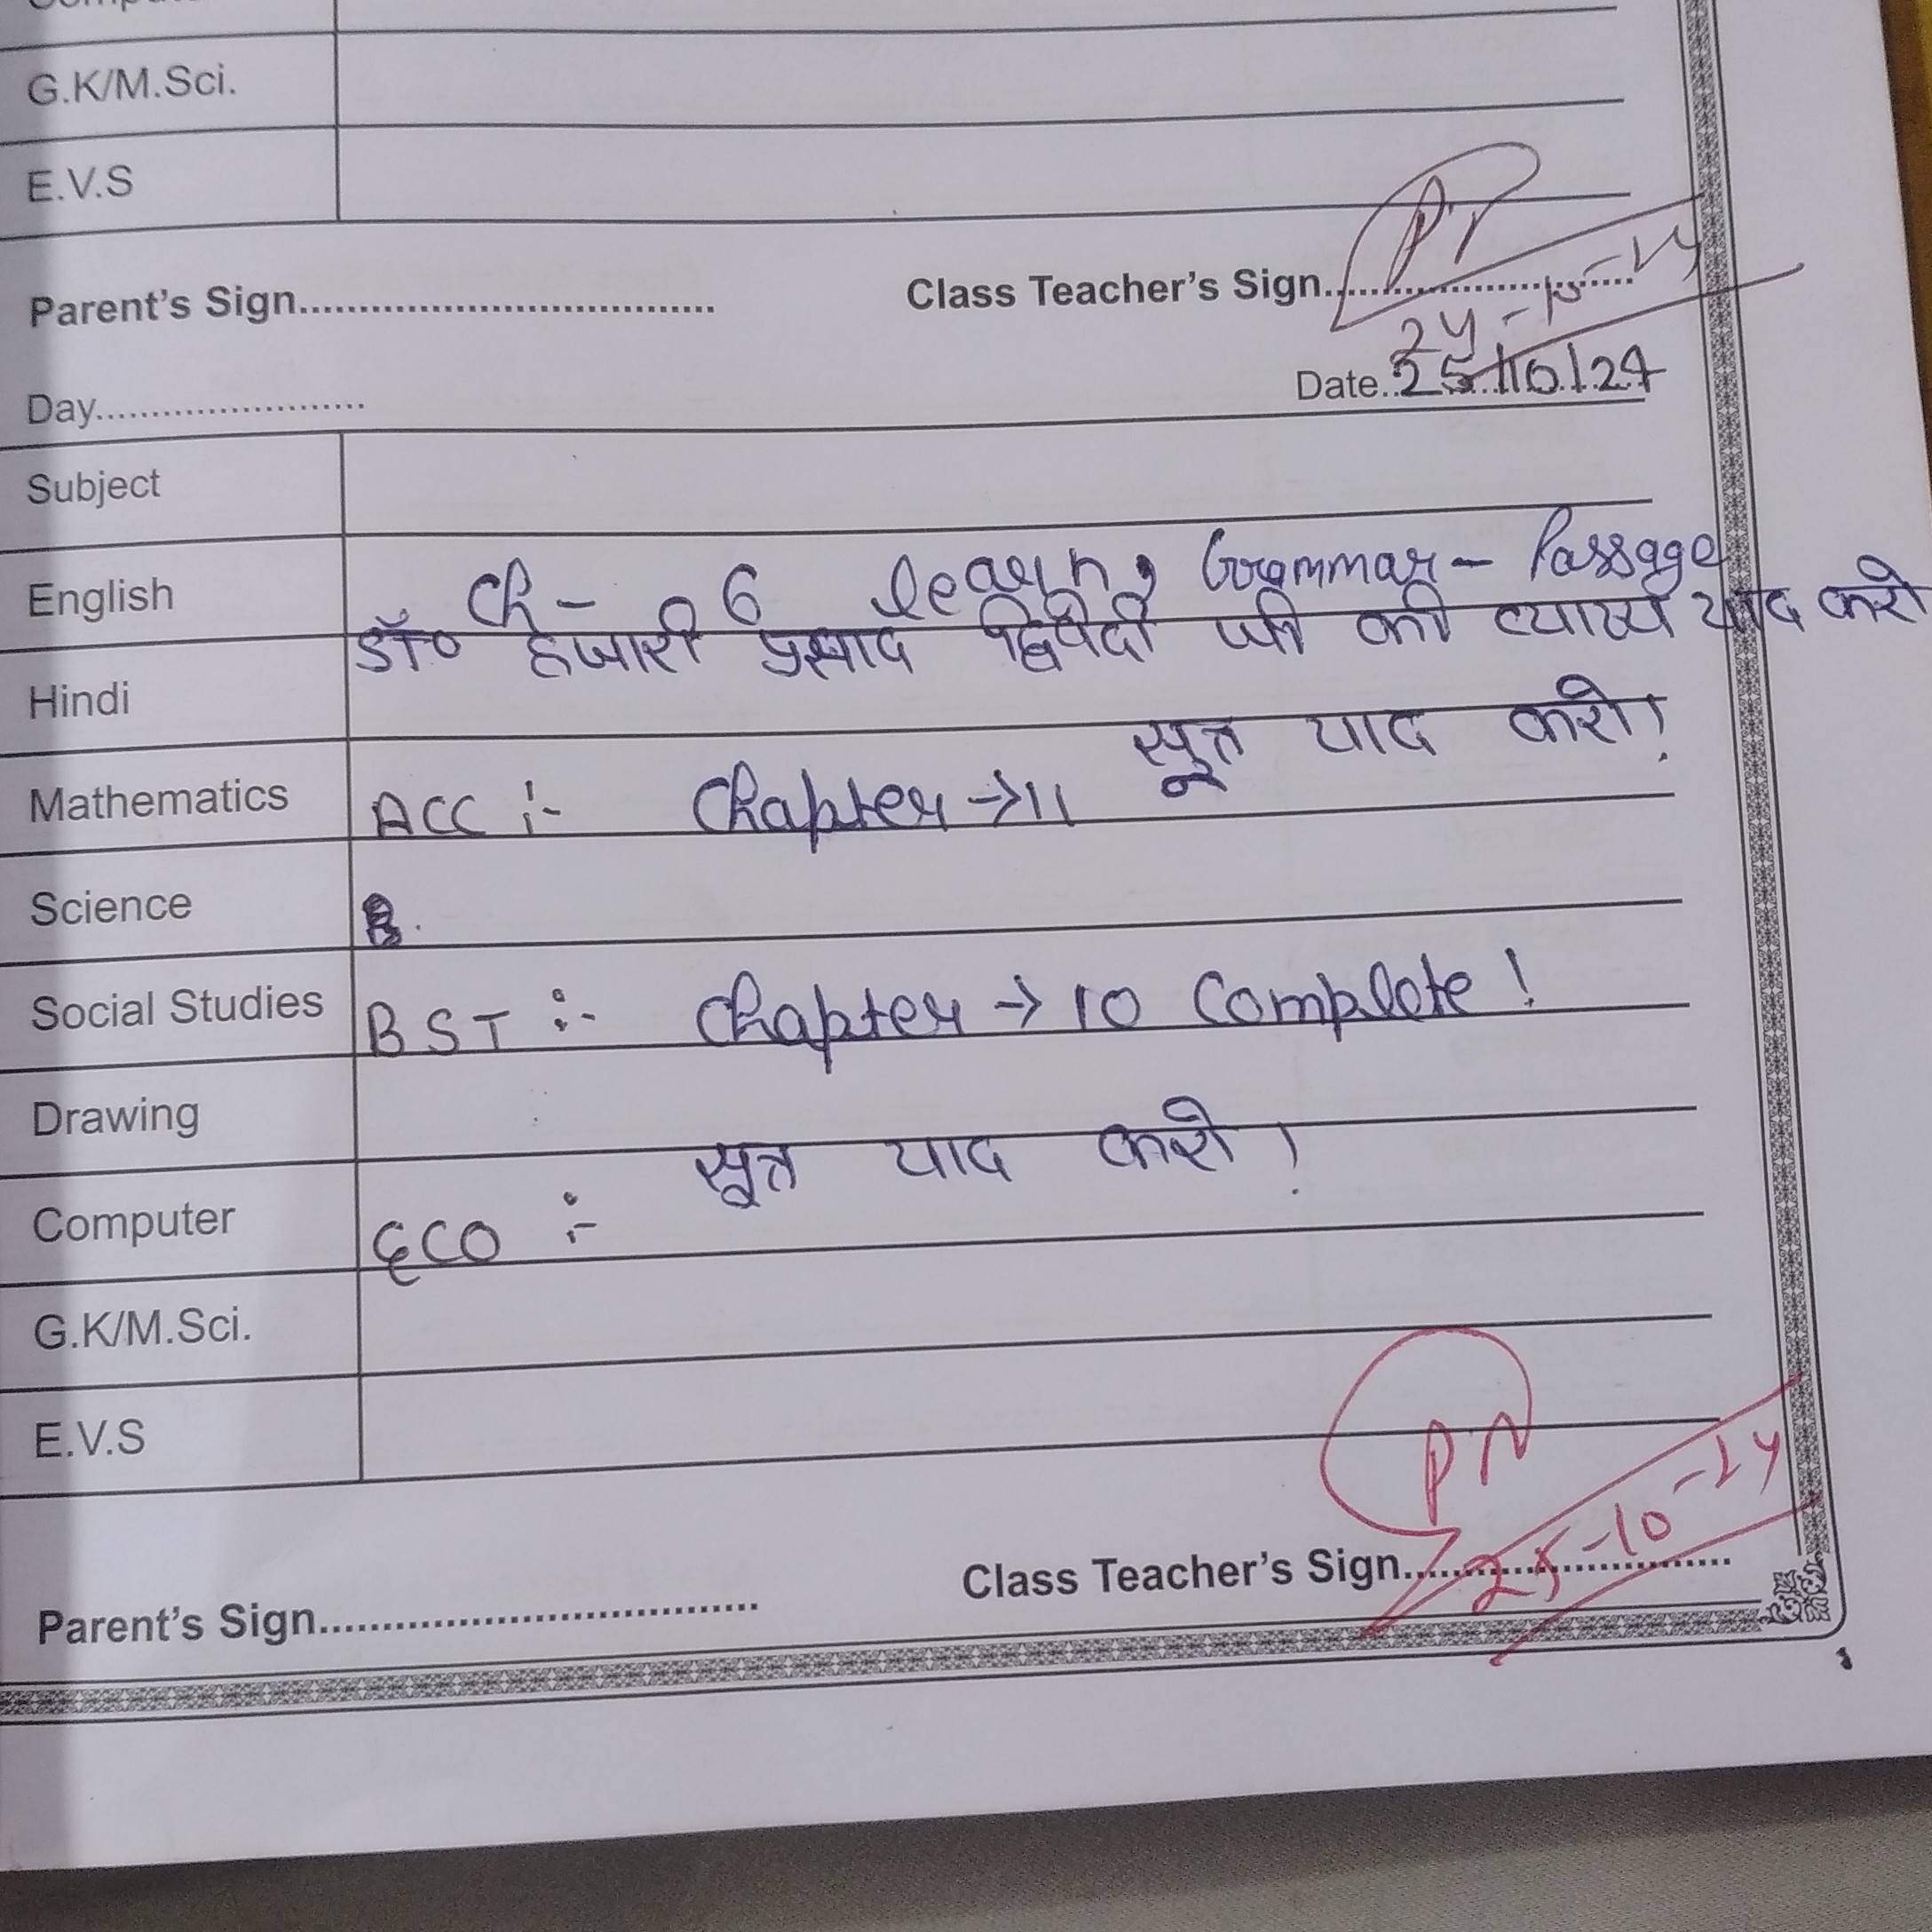 G.K/M.Sci.
E.V.S
Parent's Sign.................................. Class Teacher's Sign..........................
24-10-24
Day....................... Date..25/10/24
Subject
English Ch- 6 learn, Grammar- Passage
Hindi डॉ० हजारी प्रसाद द्विवेदी जी की व्याख्या याद करो
Mathematics ACC :- Chapter →11 सूत्र याद करो!
Science
Social Studies BST :- Chapter → 10 Complete!
Drawing
Computer ECO :- सूत्र याद करो!
G.K/M.Sci.
E.V.S
Parent's Sign.................................. Class Teacher's Sign..........................
25-10-24